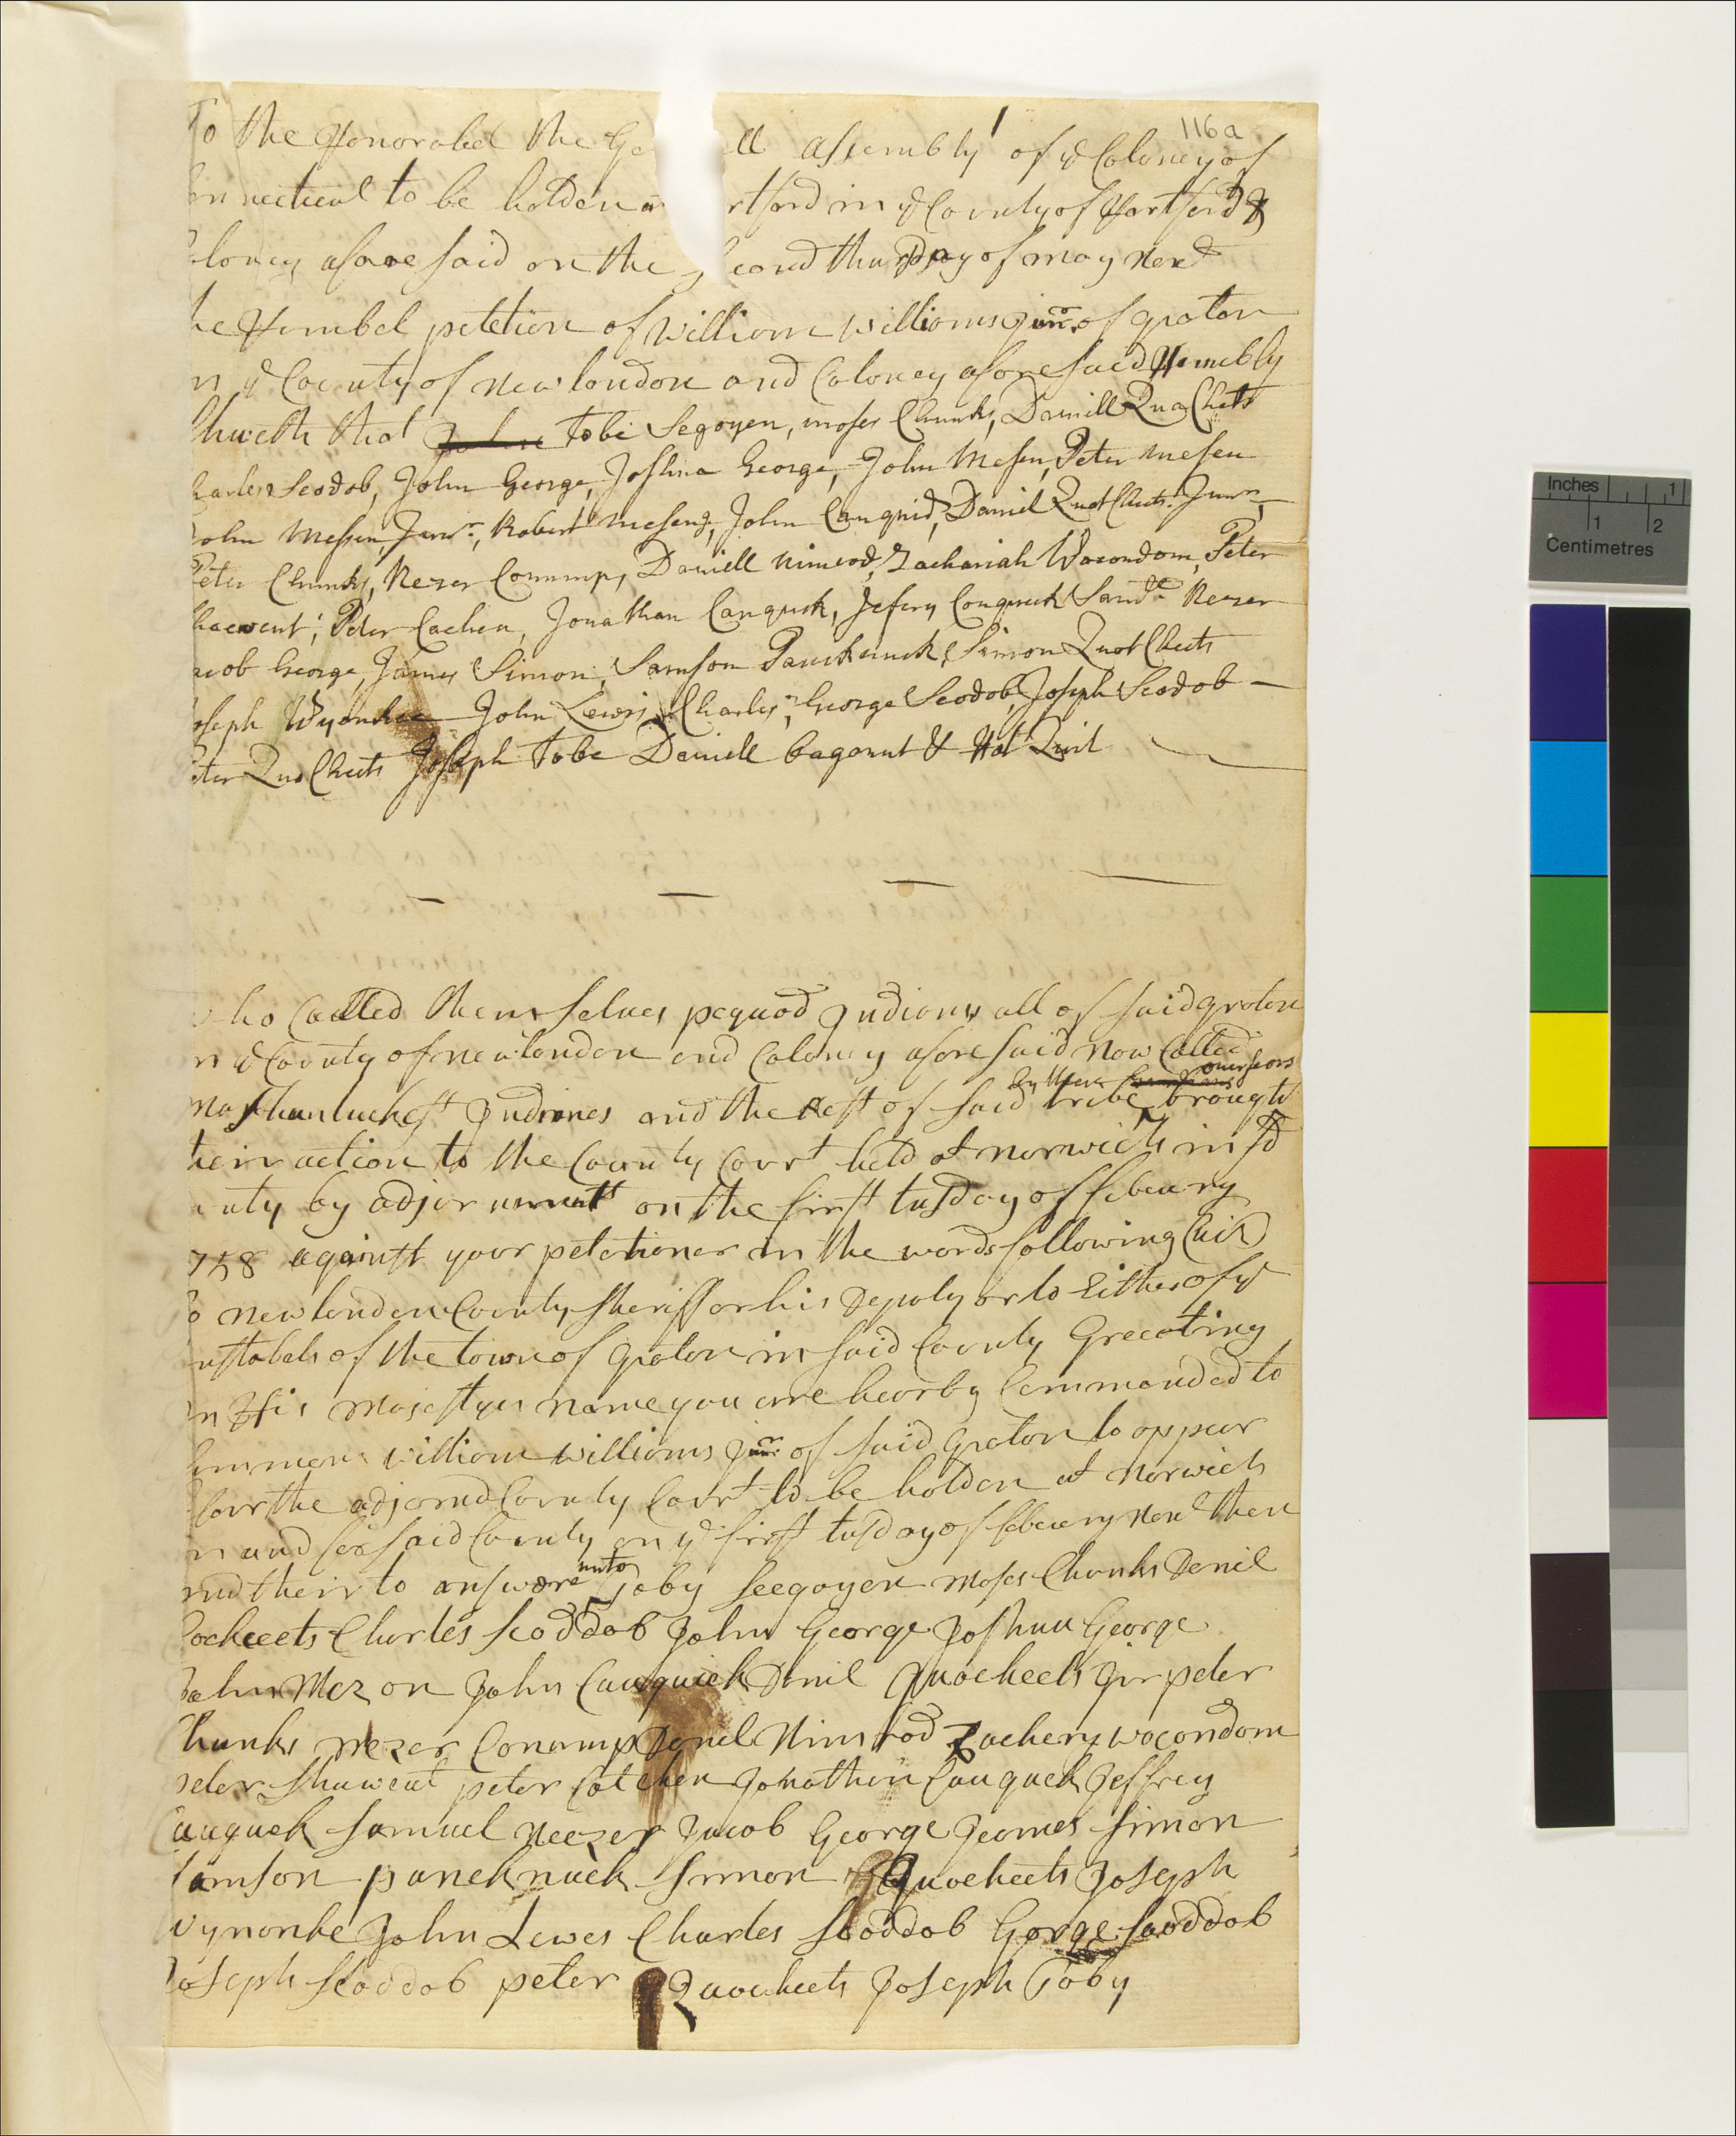 116a
To the Honorabel the Ge ll assembly of ye Coloney of
nnecticut to be holden a rtford in ye County of Hartford &
oloney afore said on the second thursday of may Next
he Humbel petetion of William Williams junr. of groton
n ye County of new london and Coloney afore said Humbly
Shueth that Tobe Segoyen, moses Chunks, Daniell QuaChets
harles Scodob, John George, Joshua George, John Mesen, Peter mesen
John Messen, Junr., Robert mesen, John Cauquid, Daniel QuotCheets Junr,
Peter Chunks, Nezer Conump, Daniell nimrod, Zachariah Wacondom, Peter
Shacwent, Peter Cachen, Jonathan Cauquek, Jefery Conqueek Samll Neezer
acob George, James Simon, Samson Pauckunuck, Simon QuotCheets
oseph Wyonkee John Lewis, Charles, George Scodob, Joseph Scodob —
eter QuoCheets Joseph Tobe Daniell &
who Called themselves pequod Indians all of said groton
n ye County of new london and Coloney afore said now Called
by their overseors
mashuntuckest Indiones and the Rest of said tribe brought
their action to the County Court held at norwich in sd
unty by adjornment on the first tusday of febeuery
758 against your petetioner in the words following (viz)
To new london County Sheriff or his Deputy or to Either of ye
nstabels of the town of groton in said County Greeating
In His Majestyes name you are hearby Commanded to
ummon william williams junr of said groton to appear
foor the adjornd County Court to be holden at norwich
in and for said County on ye first tusday of febeuery next then
unto
and their to answare Toby Seegoyen Moses Chunks Denil
ocheeets Charles Scoddob John George Joshua George
John Mezon John Cauquick Denil Quocheets jur peter
Chunks nezer Conump Denel Nimrod Zachery wocondom
peter Shuwent peter Catchen Jonathon Cauquek Jeffrey
Cauquek Samuel Neezer Jacob George Jeames Simon
Samson panchnuck Simon Quocheets Joseph
Wynonke John Lewes Charles Scoddob Gorge Scoddob
Joseph Scoddob peter Quocheets Joseph Toby
Inches 1
1 2
Centimetres